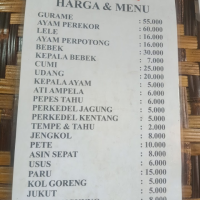 HARGA & MENU
GURAME : 55.000
AYAM PEREKOR : 60.000
LELE : 16.000
AYAM PERPOTONG : 16.000
BEBEK : 30.000
KEPALA BEBEK : 7.000
CUMI : 25.000
UDANG : 20.000
KEPALA AYAM : 5.000
ATI AMPELA : 5.000
PEPES TAHU : 6.000
PERKEDEL JAGUNG : 5.000
PERKEDEL KENTANG : 5.000
TEMPE & TAHU : 2.000
JENGKOL : 8.000
PETE : 10.000
ASIN SEPAT : 8.000
USUS : 6.000
PARU : 15.000
KOL GORENG : 5.000
JUKUT : 5.000